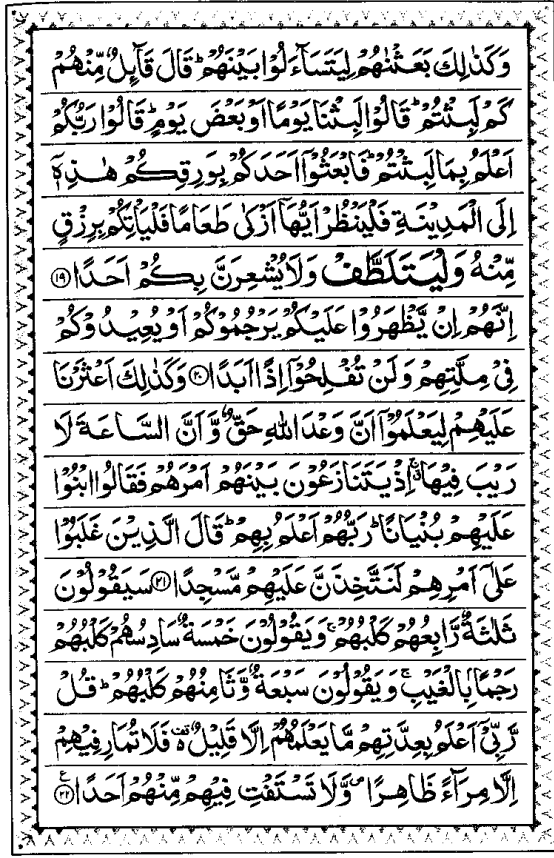 وَكَذٰلِكَ بَعَثْنٰهُمْ لِيَتَسَآءَلُوْا بَيْنَهُمْ ؕ قَالَ قَآىِٕلٌ مِّنْهُمْ
كَمْ لَبِثْتُمْ ؕ قَالُوْا لَبِثْنَا يَوْمًا اَوْ بَعْضَ يَوْمٍ ؕ قَالُوْا رَبُّكُمْ
اَعْلَمُ بِمَا لَبِثْتُمْ ؕ فَابْعَثُوْۤا اَحَدَكُمْ بِوَرِقِكُمْ هٰذِهٖۤ
اِلَى الْمَدِيْنَةِ فَلْيَنْظُرْ اَيُّهَاۤ اَزْكٰى طَعَامًا فَلْيَاْتِكُمْ بِرِزْقٍ
مِّنْهُ وَلْيَتَلَطَّفْ وَلَا يُشْعِرَنَّ بِكُمْ اَحَدًا ۝۱۹
اِنَّهُمْ اِنْ يَّظْهَرُوْا عَلَيْكُمْ يَرْجُمُوْكُمْ اَوْ يُعِيْدُوْكُمْ
فِيْ مِلَّتِهِمْ وَلَنْ تُفْلِحُوْۤا اِذًا اَبَدًا ۝۲۰ وَكَذٰلِكَ اَعْثَرْنَا
عَلَيْهِمْ لِيَعْلَمُوْۤا اَنَّ وَعْدَ اللّٰهِ حَقٌّ وَّاَنَّ السَّاعَةَ لَا
رَيْبَ فِيْهَا ۚ اِذْ يَتَنَازَعُوْنَ بَيْنَهُمْ اَمْرَهُمْ فَقَالُوا ابْنُوْا
عَلَيْهِمْ بُنْيَانًا ؕ رَبُّهُمْ اَعْلَمُ بِهِمْ ؕ قَالَ الَّذِيْنَ غَلَبُوْا
عَلٰۤى اَمْرِهِمْ لَنَتَّخِذَنَّ عَلَيْهِمْ مَّسْجِدًا ۝۲۱ سَيَقُوْلُوْنَ
ثَلٰثَةٌ رَّابِعُهُمْ كَلْبُهُمْ ۚ وَيَقُوْلُوْنَ خَمْسَةٌ سَادِسُهُمْ كَلْبُهُمْ
رَجْمًۢا بِالْغَيْبِ ۚ وَيَقُوْلُوْنَ سَبْعَةٌ وَّثَامِنُهُمْ كَلْبُهُمْ ؕ قُلْ
رَّبِّيْۤ اَعْلَمُ بِعِدَّتِهِمْ مَّا يَعْلَمُهُمْ اِلَّا قَلِيْلٌ ۬ فَلَا تُمَارِ فِيْهِمْ
اِلَّا مِرَآءً ظَاهِرًا ۪ وَّلَا تَسْتَفْتِ فِيْهِمْ مِّنْهُمْ اَحَدًا ۝۲۲ ع